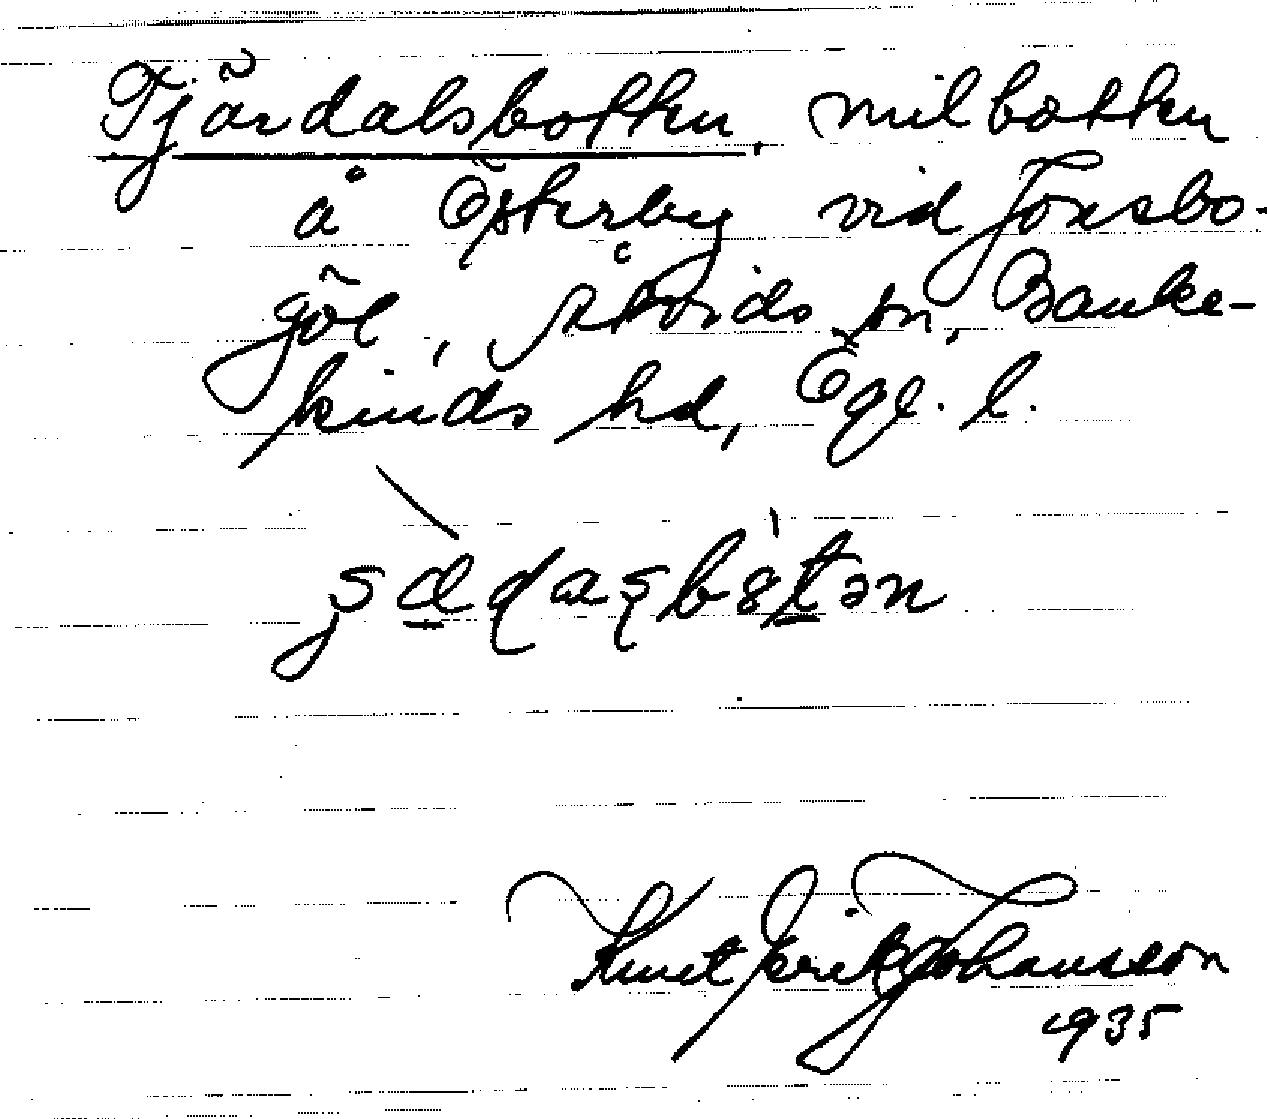 Tjärdalsbotten, milbotten
å Österby vid Jonsbo-
göl, Åtvids sn, Banke-
kinds hd, Ögl. l.
Knut Erik Johansson
1935